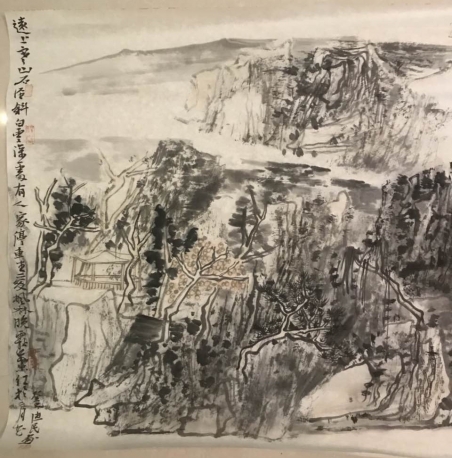 遠上寒山石径斜白雲深處有人家停車坐愛楓林晚霜葉紅於二月花
民画